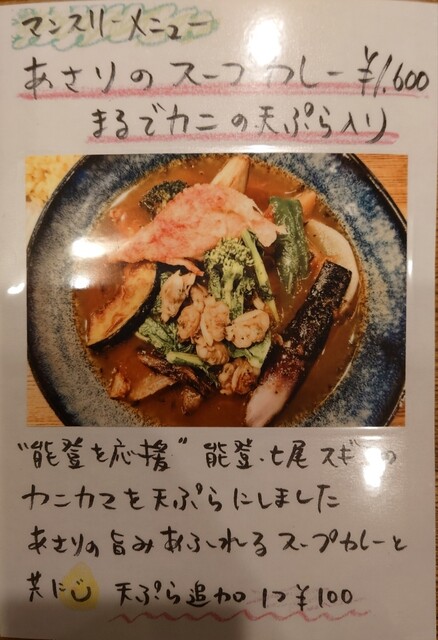 マンスリーメニュー
あさりのスープカレー ¥1,600
まるでカニの天ぷら入り
"能登を応援" 能登・七尾 スギ の
カニカマを天ぷらにしました
あさりの旨みあふれるスープカレーと
共に 天ぷら追加 1つ ¥100